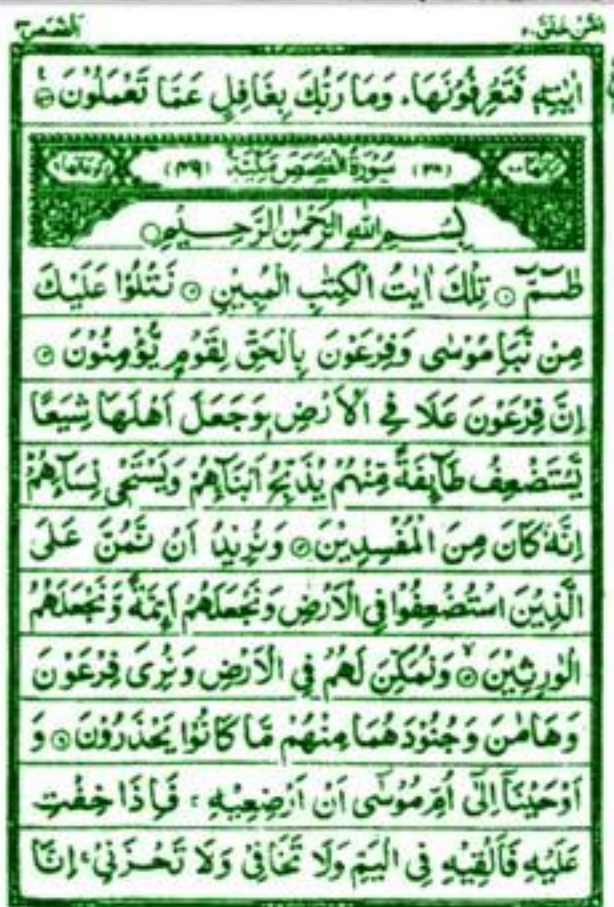 امّن خلق ٢٠ القصص ٢٨
اٰيٰتِهٖ فَتَعْرِفُوْنَهَا ۚ وَمَا رَبُّكَ بِغَافِلٍ عَمَّا تَعْمَلُوْنَ
سُوْرَةُ الْقَصَصِ مَكِّيَّةٌ (٤٩)
بِسْمِ اللّٰهِ الرَّحْمٰنِ الرَّحِيْمِ
طٰسٓمّٓ ۝١ تِلْكَ اٰيٰتُ الْكِتٰبِ الْمُبِيْنِ ۝٢ نَتْلُوْا عَلَيْكَ
مِنْ نَّبَاِ مُوْسٰى وَفِرْعَوْنَ بِالْحَقِّ لِقَوْمٍ يُّؤْمِنُوْنَ ۝٣
اِنَّ فِرْعَوْنَ عَلَا فِى الْاَرْضِ وَجَعَلَ اَهْلَهَا شِيَعًا
يَّسْتَضْعِفُ طَآىِٕفَةً مِّنْهُمْ يُذَبِّحُ اَبْنَآءَهُمْ وَيَسْتَحْىٖ نِسَآءَهُمْ
اِنَّهٗ كَانَ مِنَ الْمُفْسِدِيْنَ ۝٤ وَنُرِيْدُ اَنْ نَّمُنَّ عَلَى
الَّذِيْنَ اسْتُضْعِفُوْا فِى الْاَرْضِ وَنَجْعَلَهُمْ اَىِٕمَّةً وَّنَجْعَلَهُمُ
الْوٰرِثِيْنَ ۝٥ وَنُمَكِّنَ لَهُمْ فِى الْاَرْضِ وَنُرِىَ فِرْعَوْنَ
وَهَامٰنَ وَجُنُوْدَهُمَا مِنْهُمْ مَّا كَانُوْا يَحْذَرُوْنَ ۝٦ وَ
اَوْحَيْنَآ اِلٰٓى اُمِّ مُوْسٰٓى اَنْ اَرْضِعِيْهِ ۚ فَاِذَا خِفْتِ
عَلَيْهِ فَاَلْقِيْهِ فِى الْيَمِّ وَلَا تَخَافِىْ وَلَا تَحْزَنِىْ ۚ اِنَّا